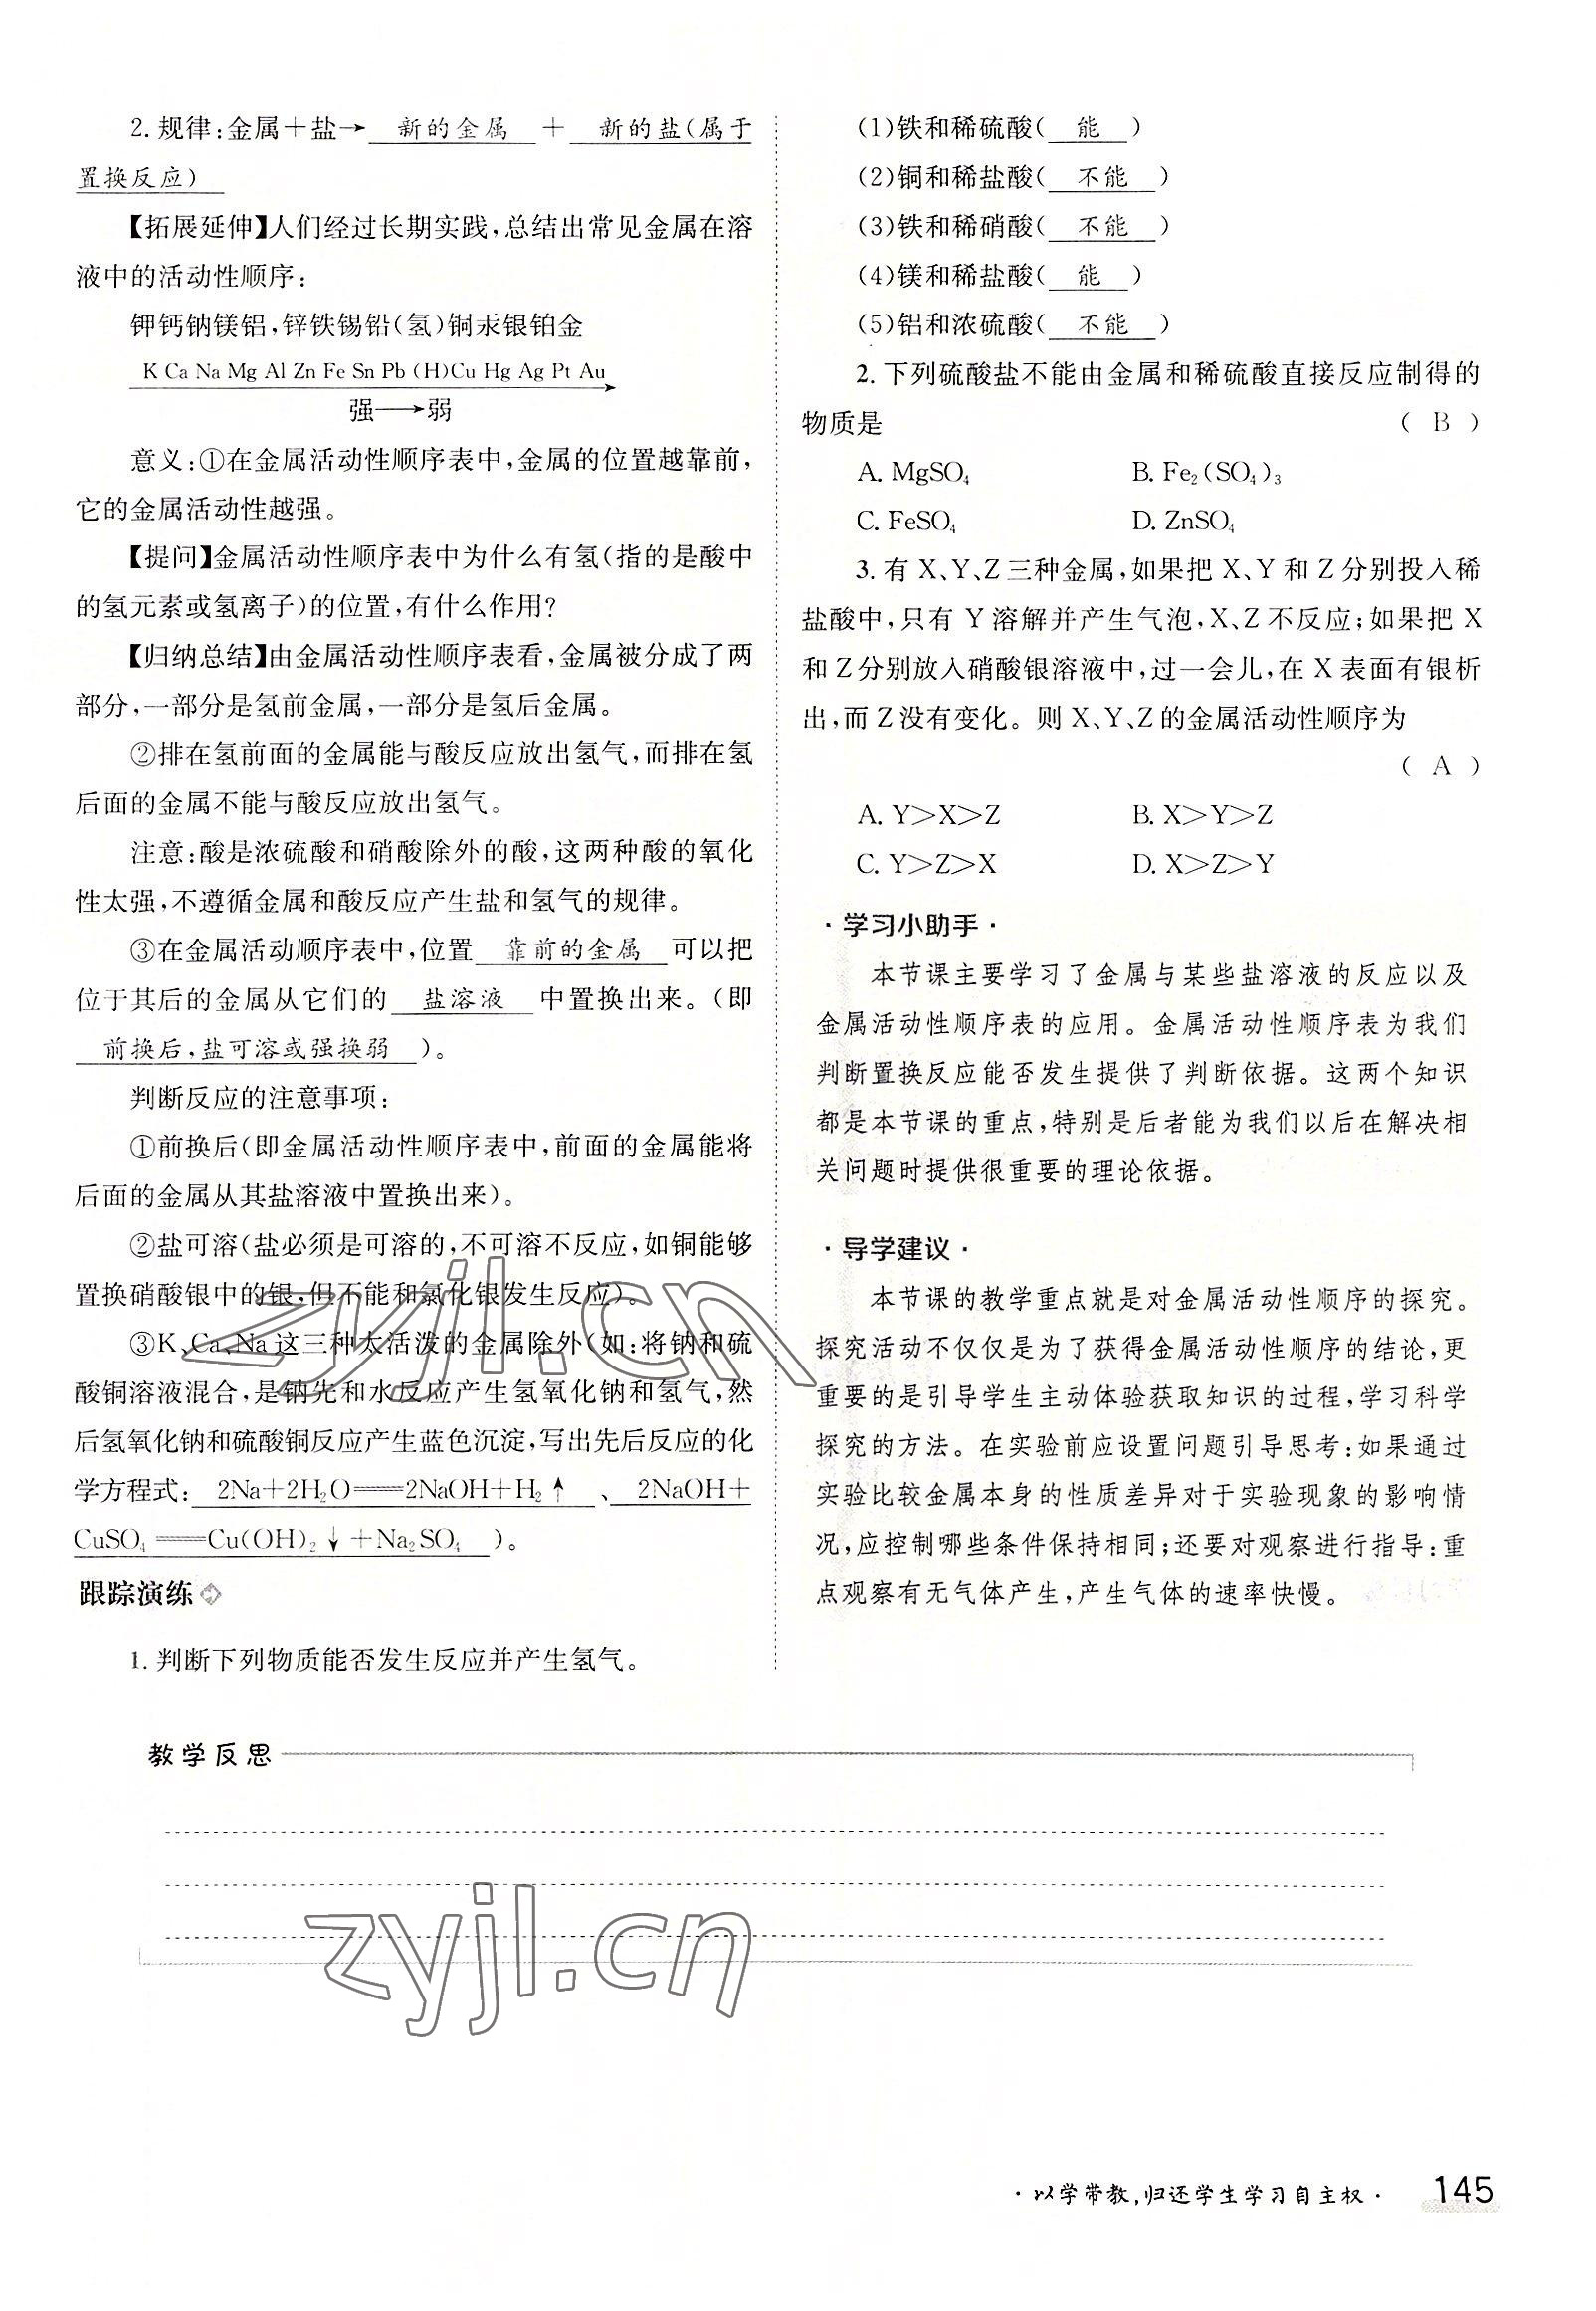 2. 规律:金属+盐→ 新的金属 + 新的盐(属于
置换反应)
【拓展延伸】人们经过长期实践,总结出常见金属在溶
液中的活动性顺序:
钾钙钠镁铝,锌铁锡铅(氢)铜汞银铂金
K Ca Na Mg Al Zn Fe Sn Pb (H)Cu Hg Ag Pt Au
强→弱
意义:①在金属活动性顺序表中,金属的位置越靠前,
它的金属活动性越强。
【提问】金属活动性顺序表中为什么有氢(指的是酸中
的氢元素或氢离子)的位置,有什么作用?
【归纳总结】由金属活动性顺序表看,金属被分成了两
部分,一部分是氢前金属,一部分是氢后金属。
②排在氢前面的金属能与酸反应放出氢气,而排在氢
后面的金属不能与酸反应放出氢气。
注意:酸是浓硫酸和硝酸除外的酸,这两种酸的氧化
性太强,不遵循金属和酸反应产生盐和氢气的规律。
③在金属活动顺序表中,位置 靠前的金属 可以把
位于其后的金属从它们的 盐溶液 中置换出来。(即
前换后,盐可溶或强换弱 )。
判断反应的注意事项:
①前换后(即金属活动性顺序表中,前面的金属能将
后面的金属从其盐溶液中置换出来)。
②盐可溶(盐必须是可溶的,不可溶不反应,如铜能够
置换硝酸银中的银,但不能和氯化银发生反应)。
③K、Ca、Na这三种太活泼的金属除外(如:将钠和硫
酸铜溶液混合,是钠先和水反应产生氢氧化钠和氢气,然
后氢氧化钠和硫酸铜反应产生蓝色沉淀,写出先后反应的化
学方程式: 2Na+2H₂O══2NaOH+H₂↑ 、 2NaOH+
CuSO₄══Cu(OH)₂↓+Na₂SO₄ )。
跟踪演练
1. 判断下列物质能否发生反应并产生氢气。
(1)铁和稀硫酸( 能 )
(2)铜和稀盐酸( 不能 )
(3)铁和稀硝酸( 不能 )
(4)镁和稀盐酸( 能 )
(5)铝和浓硫酸( 不能 )
2. 下列硫酸盐不能由金属和稀硫酸直接反应制得的
物质是 ( B )
A. MgSO₄ B. Fe₂(SO₄)₃
C. FeSO₄ D. ZnSO₄
3. 有 X、Y、Z三种金属,如果把 X、Y 和 Z分别投入稀
盐酸中,只有 Y 溶解并产生气泡,X、Z 不反应;如果把 X
和 Z分别放入硝酸银溶液中,过一会儿,在 X 表面有银析
出,而 Z没有变化。则 X、Y、Z的金属活动性顺序为
( A )
A. Y>X>Z B. X>Y>Z
C. Y>Z>X D. X>Z>Y
·学习小助手·
本节课主要学习了金属与某些盐溶液的反应以及
金属活动性顺序表的应用。金属活动性顺序表为我们
判断置换反应能否发生提供了判断依据。这两个知识
都是本节课的重点,特别是后者能为我们以后在解决相
关问题时提供很重要的理论依据。
·导学建议·
本节课的教学重点就是对金属活动性顺序的探究。
探究活动不仅仅是为了获得金属活动性顺序的结论,更
重要的是引导学生主动体验获取知识的过程,学习科学
探究的方法。在实验前应设置问题引导思考:如果通过
实验比较金属本身的性质差异对于实验现象的影响情
况,应控制哪些条件保持相同;还要对观察进行指导:重
点观察有无气体产生,产生气体的速率快慢。
教学反思
zyjl.cn
zyjl.cn
·以学带教,归还学生学习自主权· 145